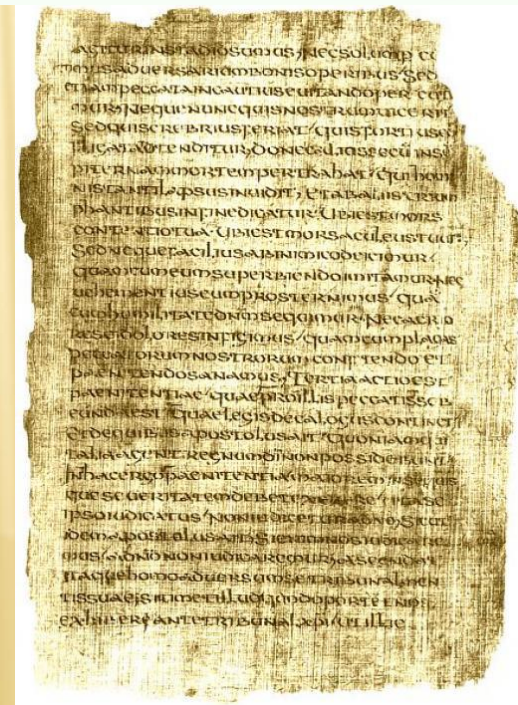 AGITUR INSTADIOSUMUS NECSOLUM
MUSADUERSARIUMBONISOPERIBUS SED
ETIAMPECCATAINCAUTIUSEUITANDO
NEQUENUNCQUISNOSTRUM
SEDQUISCREBRIUSFERIAT QUISFORTIUS
PLICATAOTENDITUR DONEC
PITERNAMMORTEMPERTRAHAT QUIHOMI
NISTANTILAPSUSINUIDIT ETABALIIS
PHANTIBUSINFINEDICATUR UBIESTMORS
CONTENTIOTUA UBIESTMORSACULEUSTUUS
SEDNEQUEFACILIUSABINIMICODEICIMUR
QUAMCUMEUMSUPERBIENDOIMITAMURNEC
UEHEMENTIUSEUMPROSTERNIMUS QUA
CUMHUMILITATEDNMSEQUIMUR NECACRIO
RESEIDOLORESINFIGIMUS QUAMCUMPLAGAS
PECCATORUMNOSTRORUMCONFITENDOET
PAENITENDOSANAMUS TERTIAACTIOEST
PAENITENTIAE QUAEPROILLISPECCATISSUB
EUNDAEST QUAELEGISDECALOGUSCONTINET
ETDEQUIBUSAPOSTOLUSAIT QUONIAMQUI
TALIAAGUNTREGNUMDINONPOSSIDEBUNT
INHACERGOPAENITENTIAMAIOREM
QUESEUERITATEMDEBET
IPSOIUDICATUS NONIUDICETURADNO SICUT
IDEMAPOSTOLUSAIT SIENIMNOSIUDICARE
MUS ADNONONIUDICAREMUR ASCENDAT
ITAQUEHOMOADUERSUMSETRIBUNALMEN
TISSUAESITIMETILLUDQUODOPORTETNOS
EXHIBERIANTETRIBUNAL